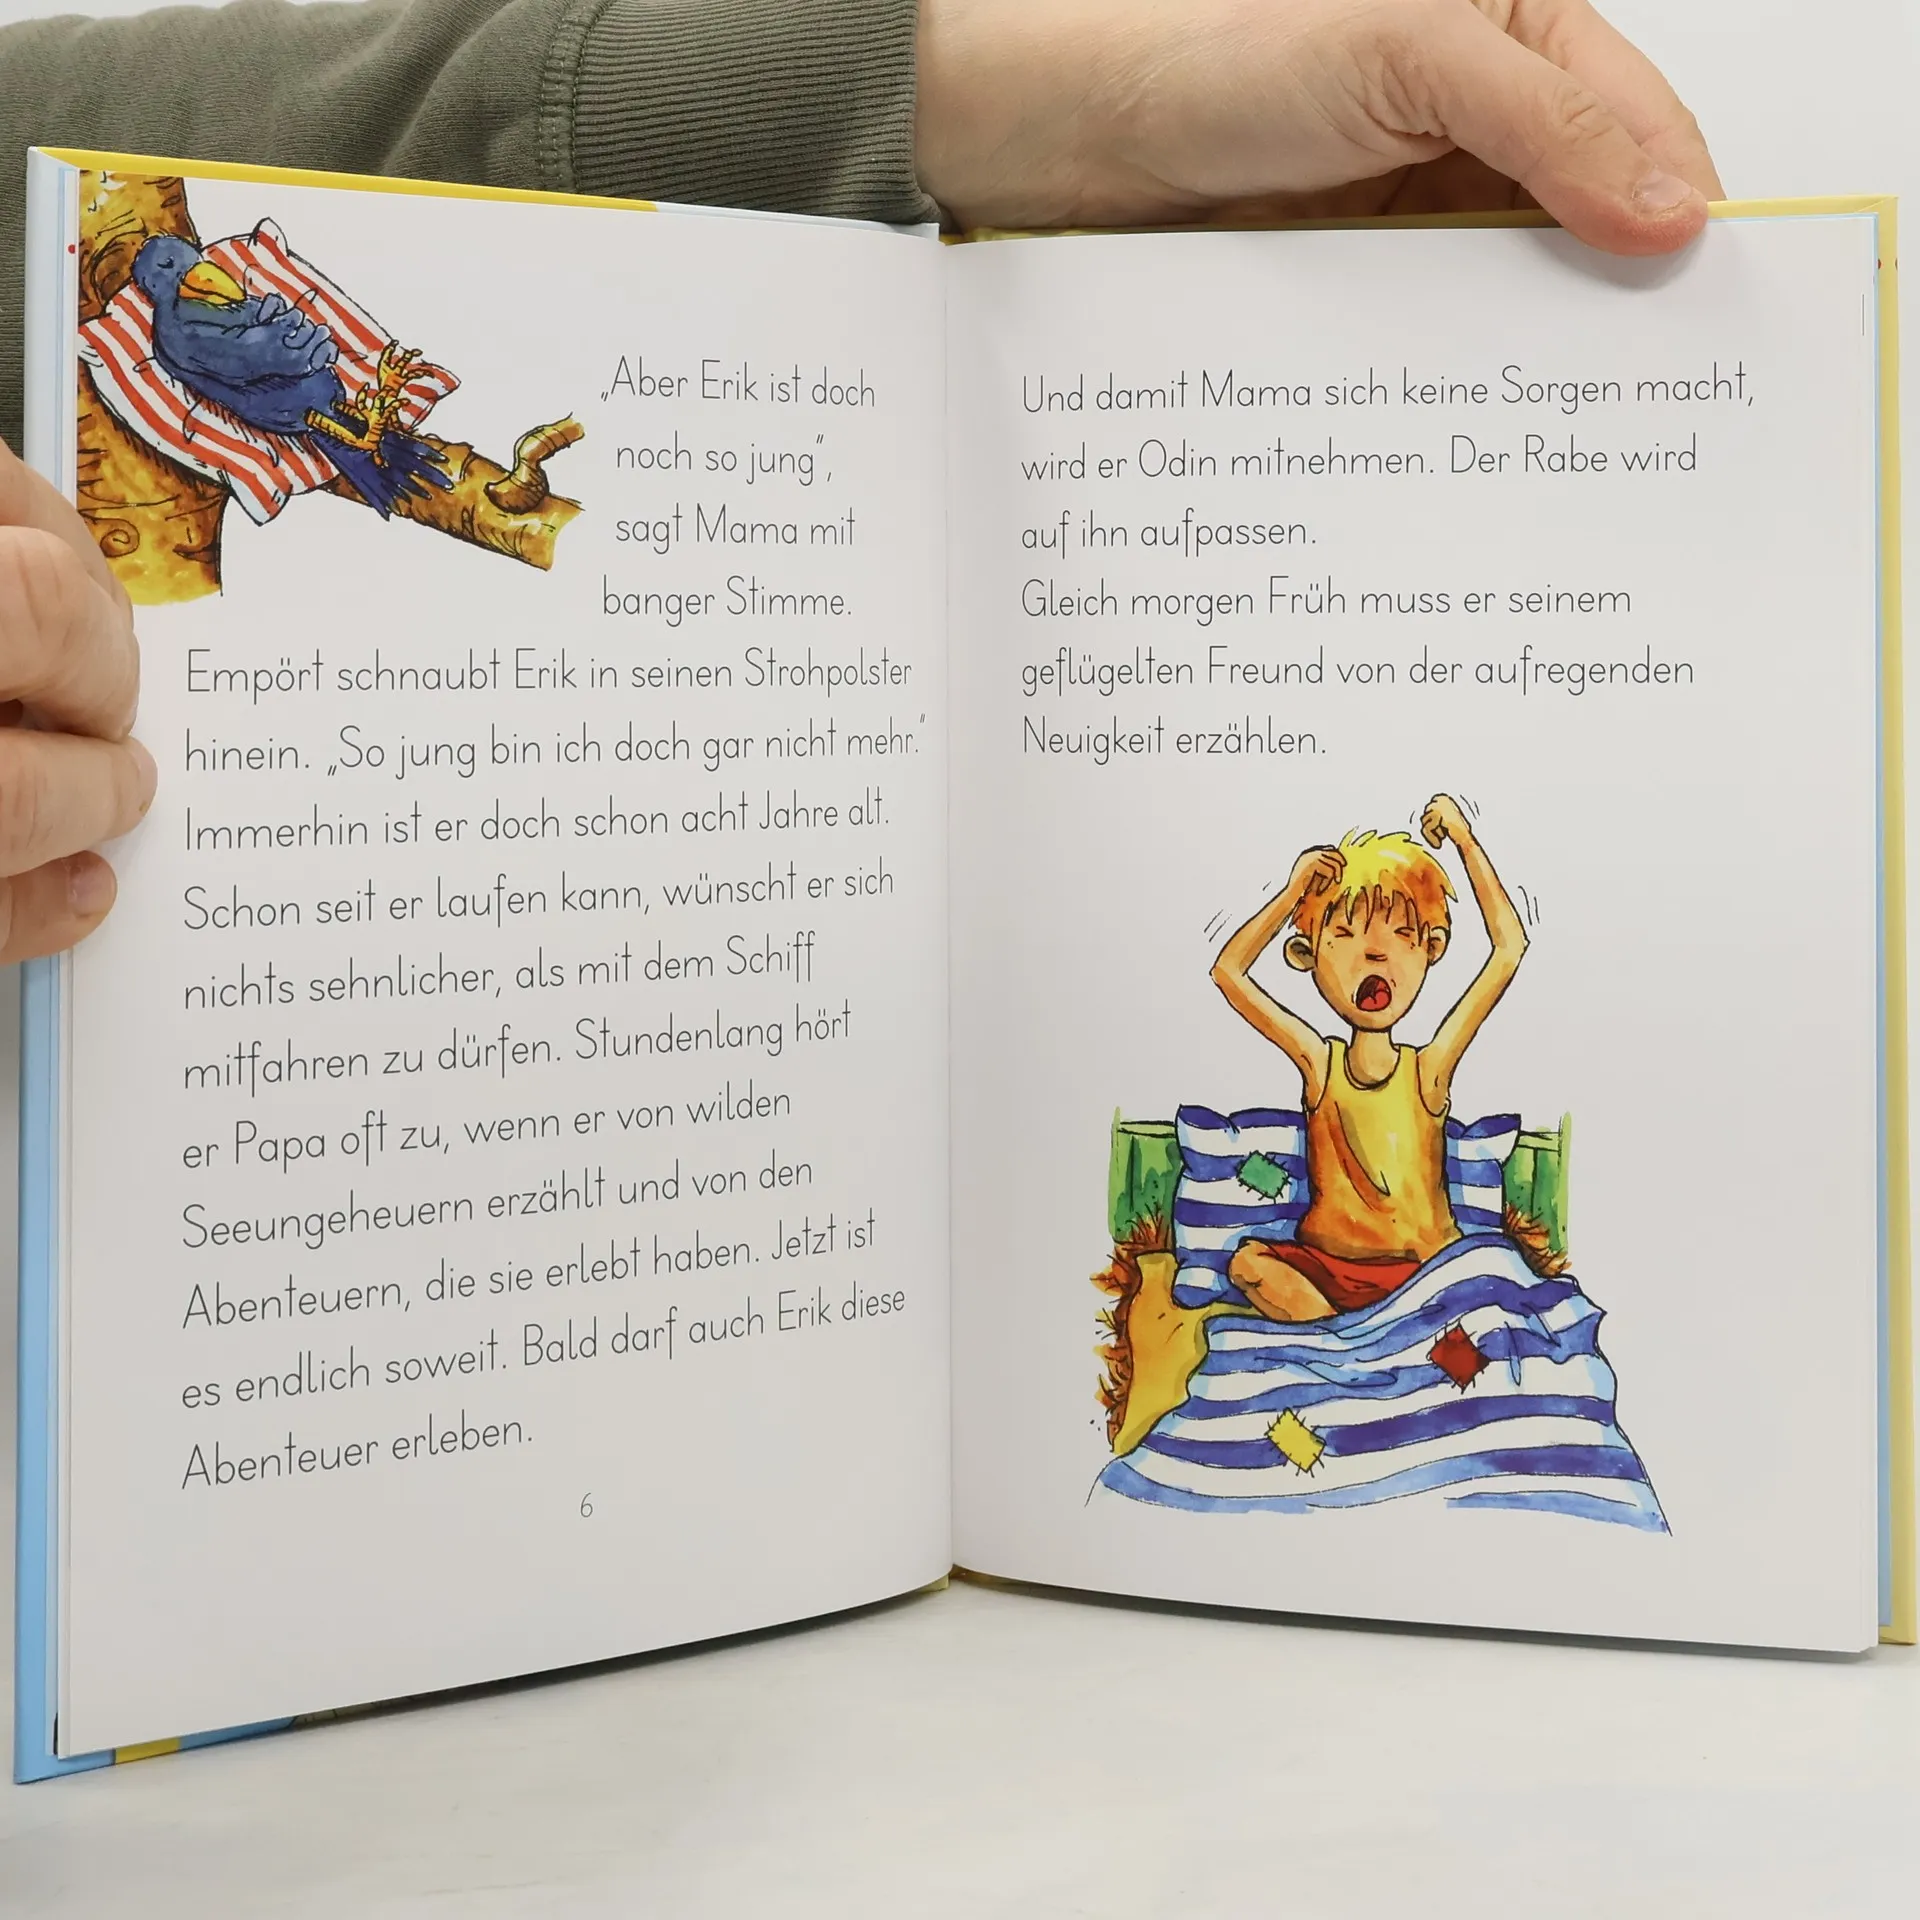 „Aber Erik ist doch
noch so jung“,
sagt Mama mit
banger Stimme.
Empört schnaubt Erik in seinen Strohpolster
hinein. „So jung bin ich doch gar nicht mehr.“
Immerhin ist er doch schon acht Jahre alt.
Schon seit er laufen kann, wünscht er sich
nichts sehnlicher, als mit dem Schiff
mitfahren zu dürfen. Stundenlang hört
er Papa oft zu, wenn er von wilden
Seeungeheuern erzählt und von den
Abenteuern, die sie erlebt haben. Jetzt ist
es endlich soweit. Bald darf auch Erik diese
Abenteuer erleben.
6
Und damit Mama sich keine Sorgen macht,
wird er Odin mitnehmen. Der Rabe wird
auf ihn aufpassen.
Gleich morgen Früh muss er seinem
geflügelten Freund von der aufregenden
Neuigkeit erzählen.